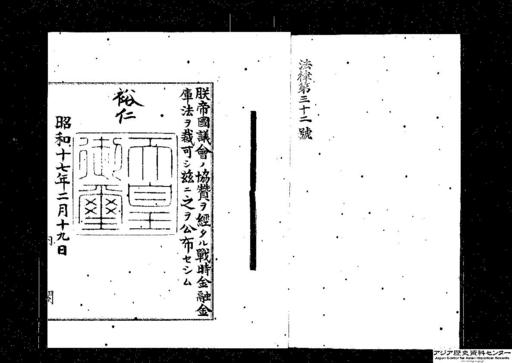 法律第三十二號
朕帝國議會ノ協贊ヲ經タル戰時金融金
庫法ヲ裁可シ玆ニ之ヲ公布セシム
裕仁
天皇
御璽
昭和十七年二月十九日
内
閣
アジア歴史資料センター
Japan Center for Asian Historical Records